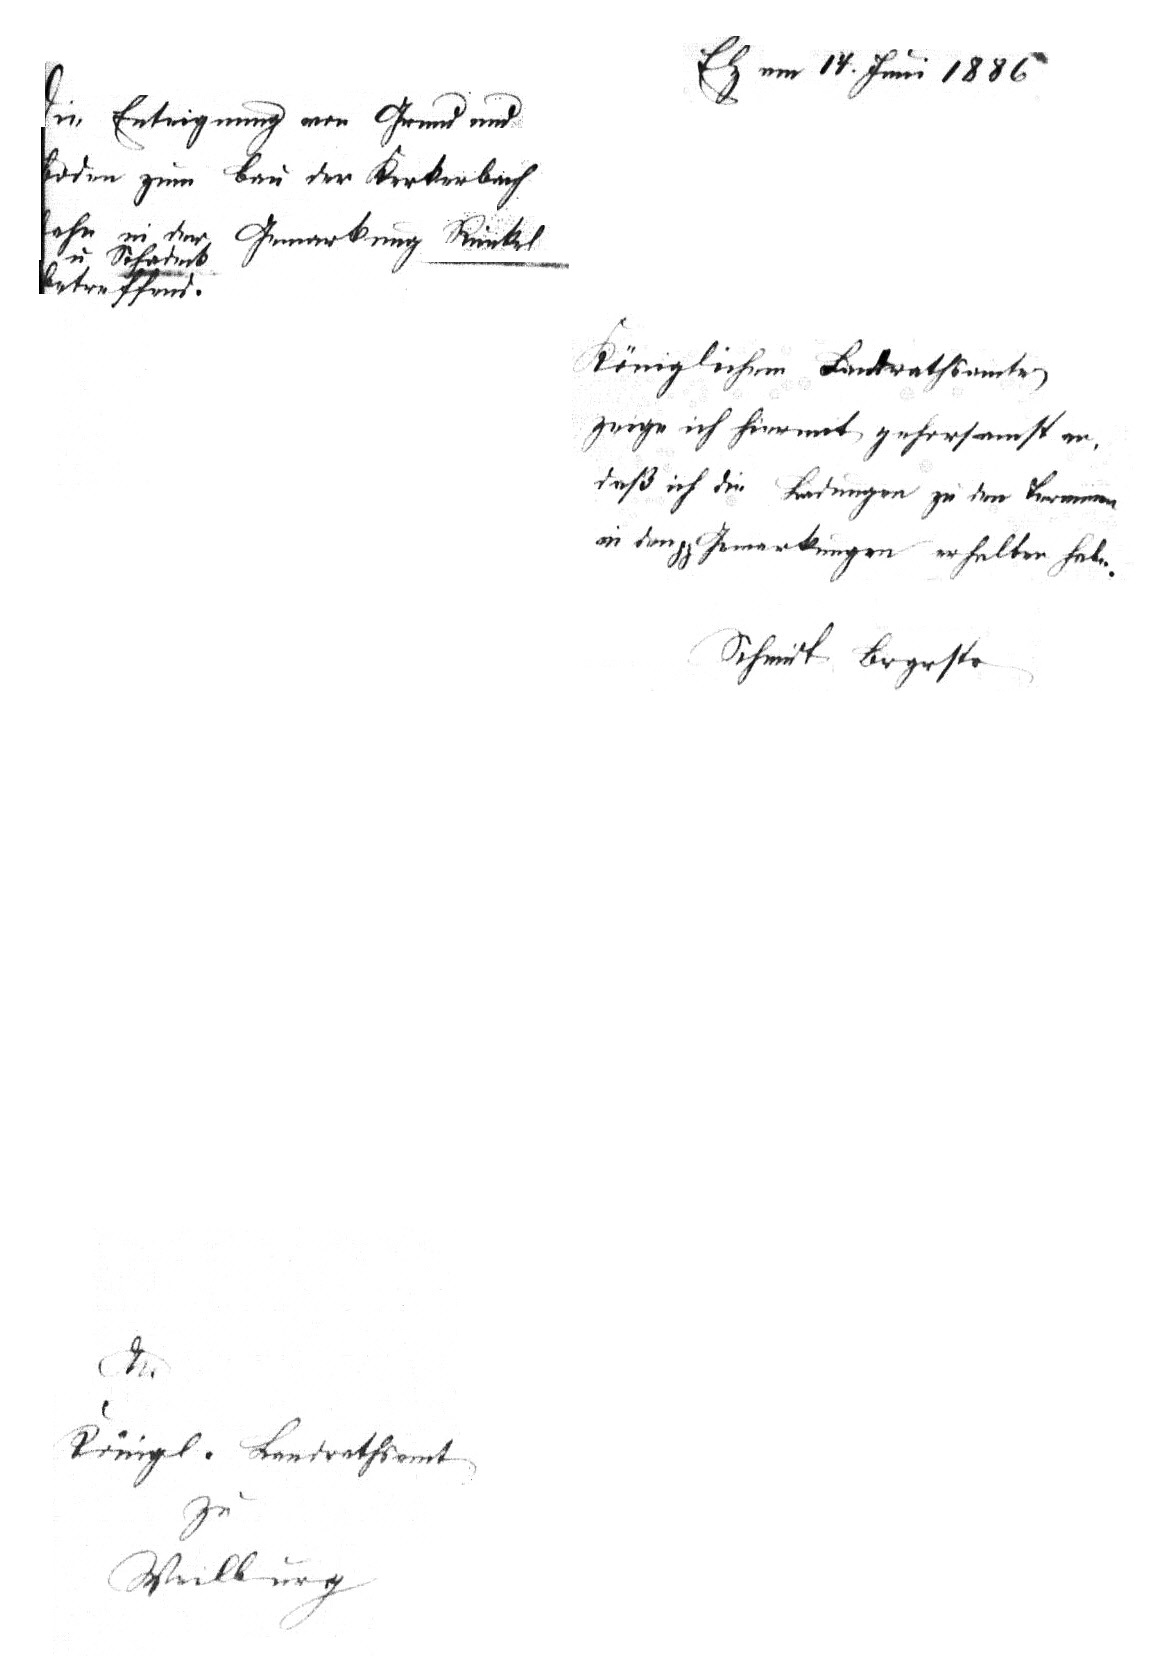 Elz am 14. Juni 1886
Die Enteignung von Grund und
Boden zum Bau der Kerkerbach
bahn in der Gemarkung Runkel
u Schadeck
betreffend.
Königlichem Landrathsamte
zeige ich hiermit gehorsamst an,
daß ich die Ladungen zu den Terminen
in den pp Gemarkungen erhalten habe.
Schmidt Brgrstr
An
Königl. Landrathsamt
zu
Weilburg